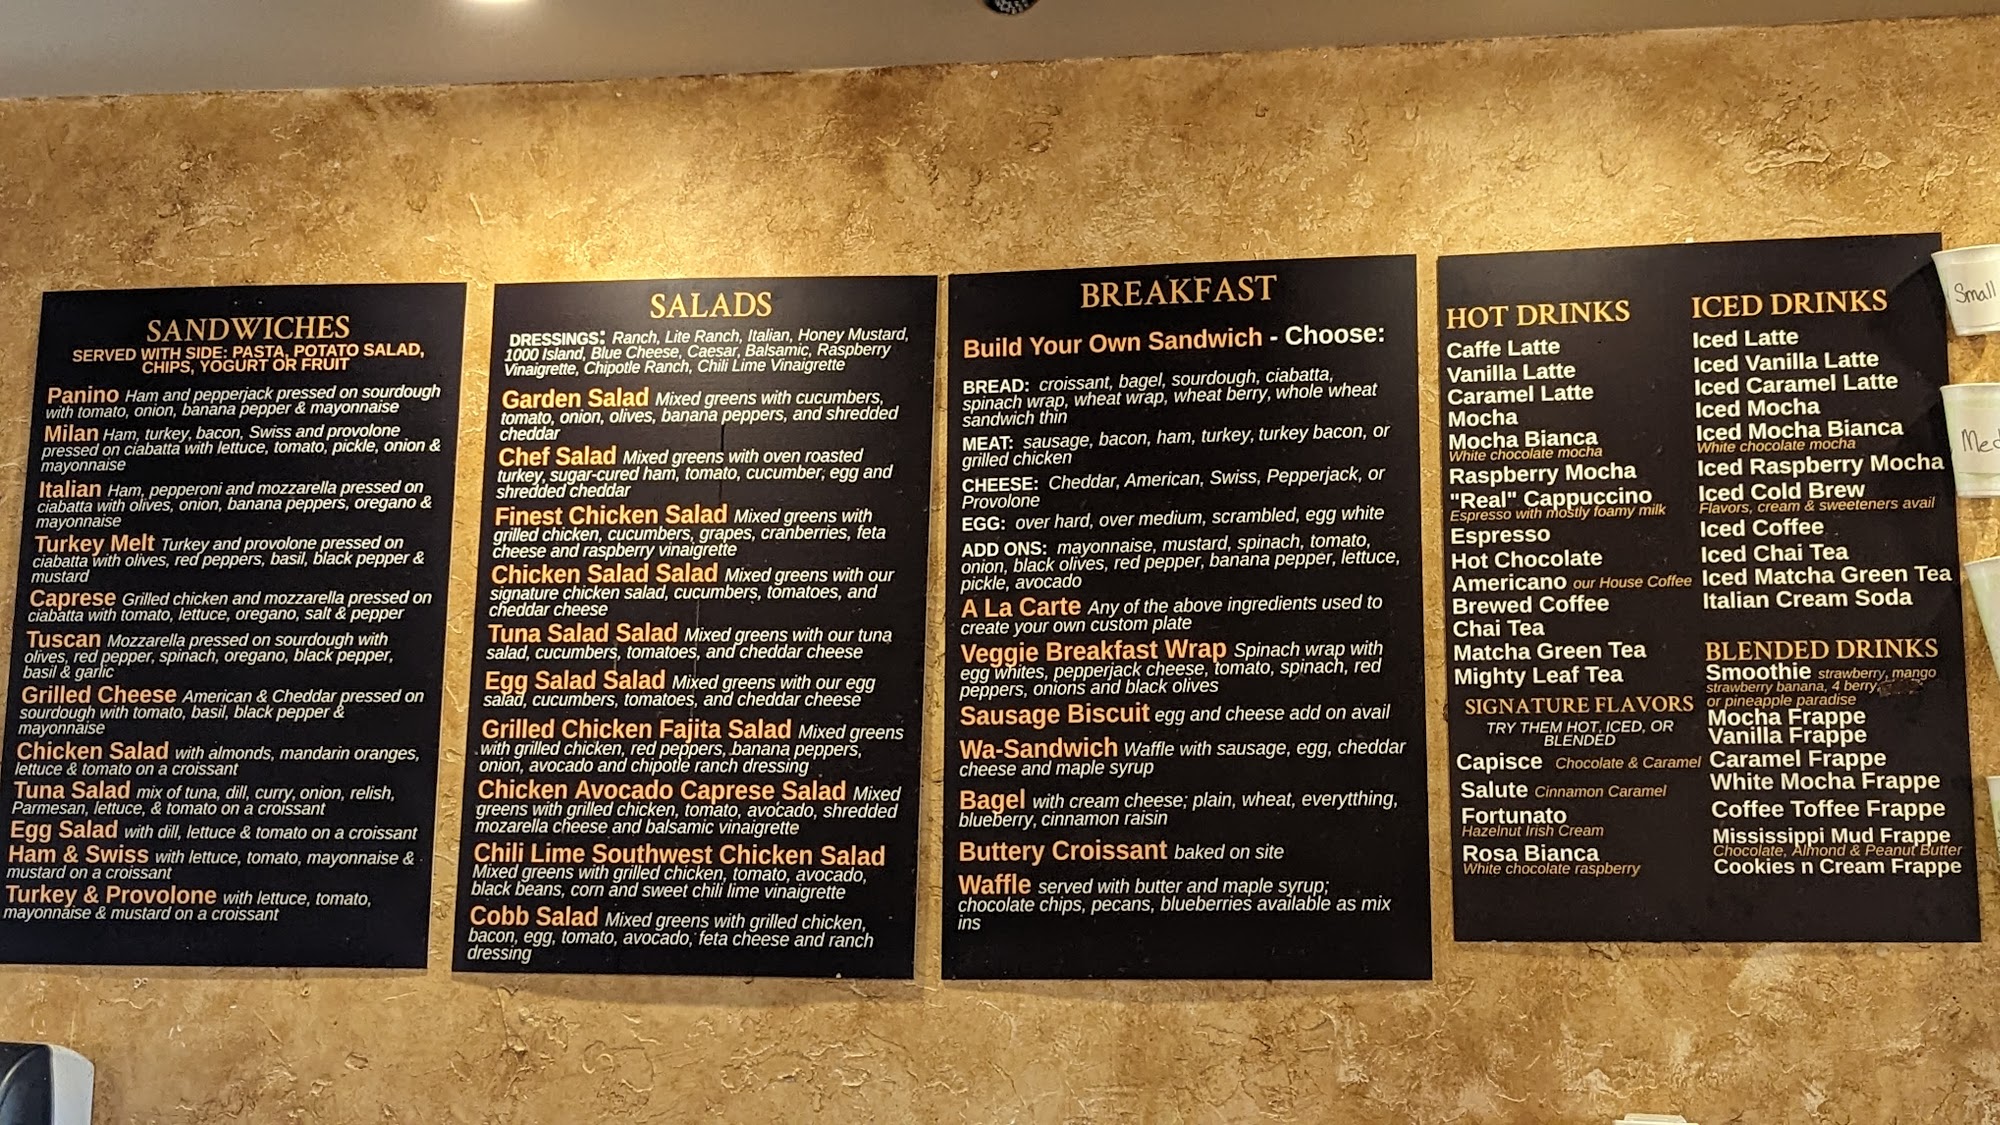 SANDWICHES
SERVED WITH SIDE: PASTA, POTATO SALAD,
CHIPS, YOGURT OR FRUIT
Panino Ham and pepperjack pressed on sourdough
with tomato, onion, banana pepper & mayonnaise
Milan Ham, turkey, bacon, Swiss and provolone
pressed on ciabatta with lettuce, tomato, pickle, onion &
mayonnaise
Italian Ham, pepperoni and mozzarella pressed on
ciabatta with olives, onion, banana peppers, oregano &
mayonnaise
Turkey Melt Turkey and provolone pressed on
ciabatta with olives, red peppers, basil, black pepper &
mustard
Caprese Grilled chicken and mozzarella pressed on
ciabatta with tomato, lettuce, oregano, salt & pepper
Tuscan Mozzarella pressed on sourdough with
olives, red pepper, spinach, oregano, black pepper,
basil & garlic
Grilled Cheese American & Cheddar pressed on
sourdough with tomato, basil, black pepper &
mayonnaise
Chicken Salad with almonds, mandarin oranges,
lettuce & tomato on a croissant
Tuna Salad mix of tuna, dill, curry, onion, relish,
Parmesan, lettuce, & tomato on a croissant
Egg Salad with dill, lettuce & tomato on a croissant
Ham & Swiss with lettuce, tomato, mayonnaise &
mustard on a croissant
Turkey & Provolone with lettuce, tomato,
mayonnaise & mustard on a croissant
SALADS
DRESSINGS: Ranch, Lite Ranch, Italian, Honey Mustard,
1000 Island, Blue Cheese, Caesar, Balsamic, Raspberry
Vinaigrette, Chipotle Ranch, Chili Lime Vinaigrette
Garden Salad Mixed greens with cucumbers,
tomato, onion, olives, banana peppers, and shredded
cheddar
Chef Salad Mixed greens with oven roasted
turkey, sugar-cured ham, tomato, cucumber, egg and
shredded cheddar
Finest Chicken Salad Mixed greens with
grilled chicken, cucumbers, grapes, cranberries, feta
cheese and raspberry vinaigrette
Chicken Salad Salad Mixed greens with our
signature chicken salad, cucumbers, tomatoes, and
cheddar cheese
Tuna Salad Salad Mixed greens with our tuna
salad, cucumbers, tomatoes, and cheddar cheese
Egg Salad Salad Mixed greens with our egg
salad, cucumbers, tomatoes, and cheddar cheese
Grilled Chicken Fajita Salad Mixed greens
with grilled chicken, red peppers, banana peppers,
onion, avocado and chipotle ranch dressing
Chicken Avocado Caprese Salad Mixed
greens with grilled chicken, tomato, avocado, shredded
mozarella cheese and balsamic vinaigrette
Chili Lime Southwest Chicken Salad
Mixed greens with grilled chicken, tomato, avocado,
black beans, corn and sweet chili lime vinaigrette
Cobb Salad Mixed greens with grilled chicken,
bacon, egg, tomato, avocado, feta cheese and ranch
dressing
BREAKFAST
Build Your Own Sandwich - Choose:
BREAD: croissant, bagel, sourdough, ciabatta,
spinach wrap, wheat wrap, wheat berry, whole wheat
sandwich thin
MEAT: sausage, bacon, ham, turkey, turkey bacon, or
grilled chicken
CHEESE: Cheddar, American, Swiss, Pepperjack, or
Provolone
EGG: over hard, over medium, scrambled, egg white
ADD ONS: mayonnaise, mustard, spinach, tomato,
onion, black olives, red pepper, banana pepper, lettuce,
pickle, avocado
A La Carte Any of the above ingredients used to
create your own custom plate
Veggie Breakfast Wrap Spinach wrap with
egg whites, pepperjack cheese, tomato, spinach, red
peppers, onions and black olives
Sausage Biscuit egg and cheese add on avail
Wa-Sandwich Waffle with sausage, egg, cheddar
cheese and maple syrup
Bagel with cream cheese; plain, wheat, everytthing,
blueberry, cinnamon raisin
Buttery Croissant baked on site
Waffle served with butter and maple syrup;
chocolate chips, pecans, blueberries available as mix
ins
HOT DRINKS
Caffe Latte
Vanilla Latte
Caramel Latte
Mocha
Mocha Bianca
White chocolate mocha
Raspberry Mocha
"Real" Cappuccino
Espresso with mostly foamy milk
Espresso
Hot Chocolate
Americano our House Coffee
Brewed Coffee
Chai Tea
Matcha Green Tea
Mighty Leaf Tea
SIGNATURE FLAVORS
TRY THEM HOT, ICED, OR
BLENDED
Capisce Chocolate & Caramel
Salute Cinnamon Caramel
Fortunato
Hazelnut Irish Cream
Rosa Bianca
White chocolate raspberry
ICED DRINKS
Iced Latte
Iced Vanilla Latte
Iced Caramel Latte
Iced Mocha
Iced Mocha Bianca
White chocolate mocha
Iced Raspberry Mocha
Iced Cold Brew
Flavors, cream & sweeteners avail
Iced Coffee
Iced Chai Tea
Iced Matcha Green Tea
Italian Cream Soda
BLENDED DRINKS
Smoothie strawberry, mango
strawberry banana, 4 berry,
or pineapple paradise
Mocha Frappe
Vanilla Frappe
Caramel Frappe
White Mocha Frappe
Coffee Toffee Frappe
Mississippi Mud Frappe
Chocolate, Almond & Peanut Butter
Cookies n Cream Frappe
Small
Med